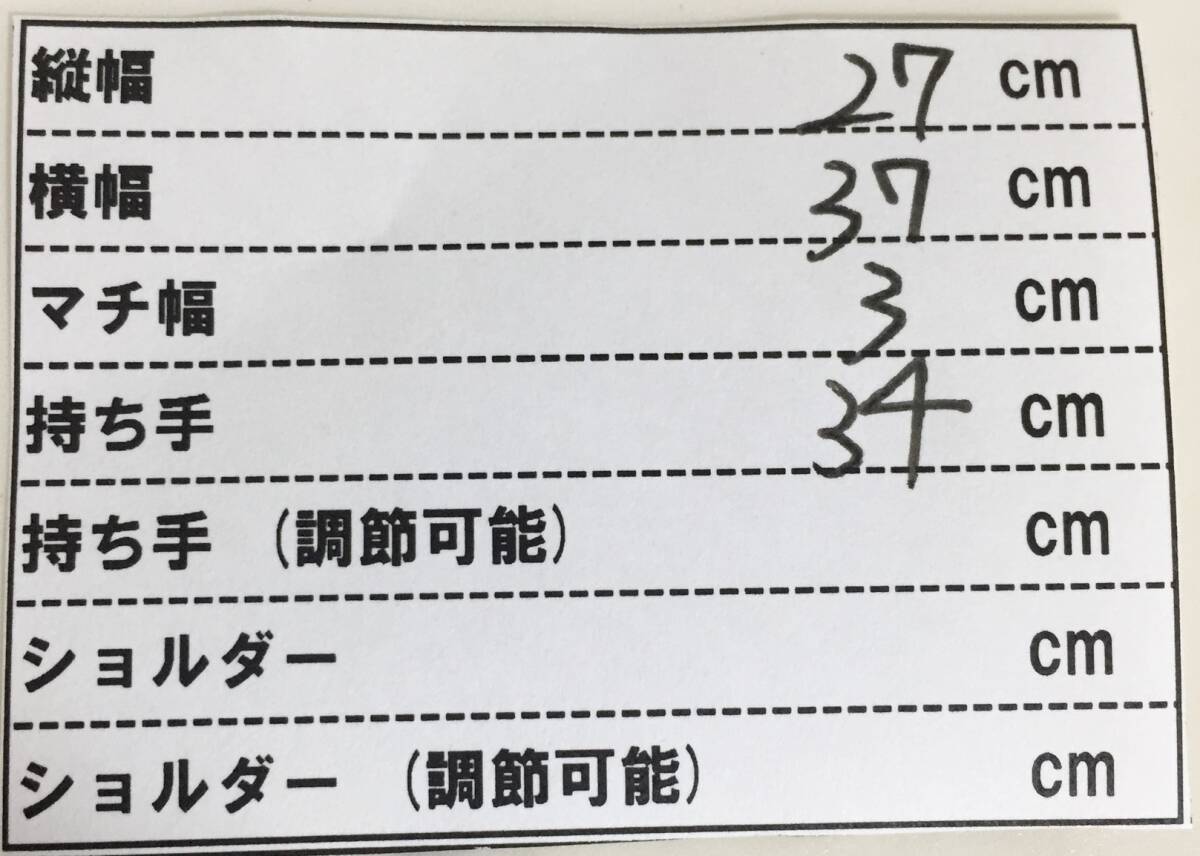 縦幅 27 cm
横幅 37 cm
マチ幅 3 cm
持ち手 34 cm
持ち手 (調節可能) cm
ショルダー cm
ショルダー (調節可能) cm